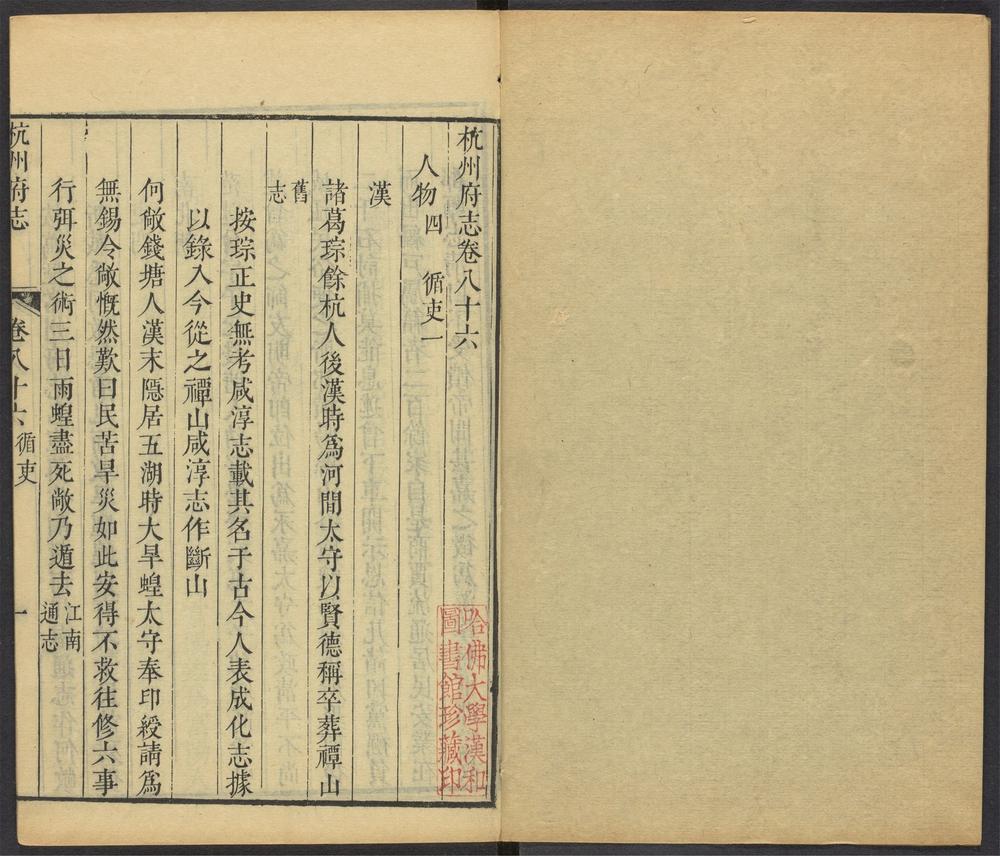 杭州府志卷八十六
人物四　循吏一
漢
諸葛琮餘杭人後漢時爲河間太守以賢德稱卒葬禫山
舊
志
按琮正史無考咸淳志載其名于古今人表成化志據
以錄入今從之禫山咸淳志作斷山
何敞錢塘人漢末隱居五湖時大旱蝗太守奉印綬請爲
無錫令敞慨然歎曰民苦旱災如此安得不救往修六事
行弭災之術三日雨蝗盡死敞乃遁去
江南
通志
杭州府志
卷八十六
循吏
一
哈佛大學漢和
圖書館珍藏印